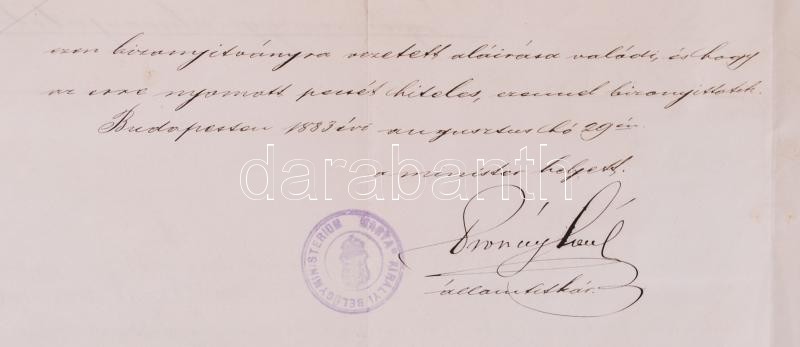 ezen bizonyitványra vezetett aláirása valódi, és hogy
az erre nyomott pecsét hiteles, ezennel bizonyittatik.
Budapesten 1883 évi augusztus hó 29 én.
a minister helyett.
Prónay
államtitkár.
MAGYAR KIRÁLYI BELÜGYMINISTERIUM
darabanth